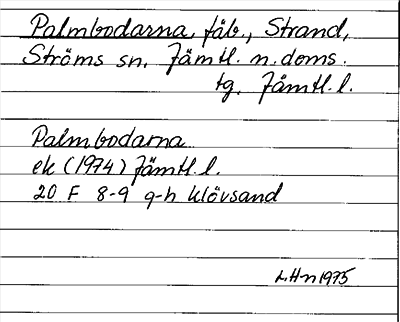 Palmbodarna, fäb., Strand,
Ströms sn, Jämtl. n. doms.
tg, Jämtl. l.
Palmbodarna
ek (1974) Jämtl. l.
20 F 8-9 g-h Klövsand
L.Hn 1975